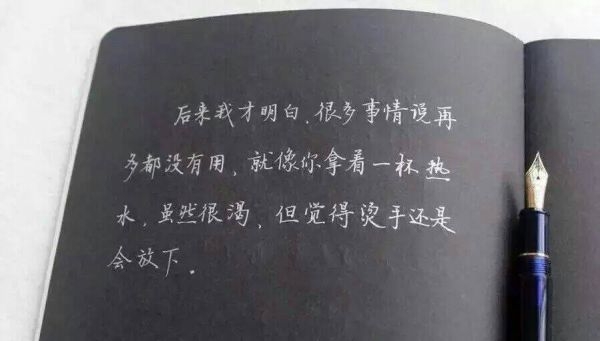 后来我才明白，很多事情说再
多都没有用，就像你拿着一杯热
水，虽然很渴，但觉得烫手还是
会放下。